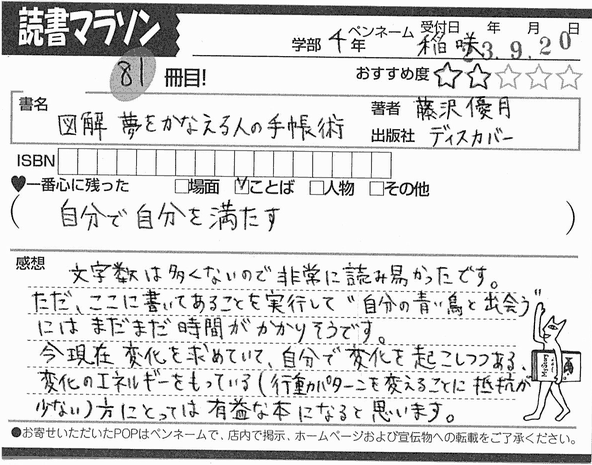 読書マラソン
学部 4年 ペンネーム 稲咲 受付日 年 月 日
23.9.20
81 冊目!
おすすめ度 ☆☆☆☆☆
書名 図解 夢をかなえる人の手帳術
著者 藤沢優月
出版社 ディスカバー
ISBN
♥一番心に残った □場面 ☑ことば □人物 □その他
(自分で自分を満たす)
感想
文字数は多くないので非常に読み易かったです。
ただ、ここに書いてあることを実行して"自分の青い鳥と出会う"
にはまだまだ時間がかかりそうです。
今現在変化を求めていて、自分で変化を起こしつつある、
変化のエネルギーをもっている(行動パターンを変えることに抵抗が
少ない)方にとっては有益な本になると思います。
●お寄せいただいたPOPはペンネームで、店内で掲示、ホームページおよび宣伝物への転載をご了承ください。